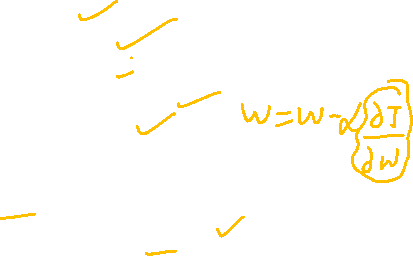 w = w - α ∂J/∂w